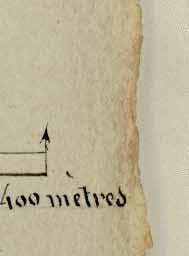 400 mètres